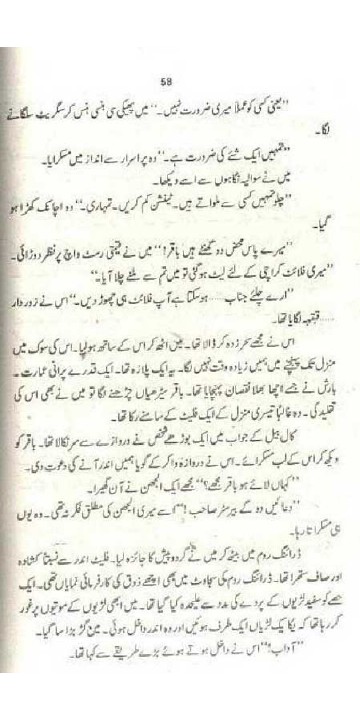 58
"یعنی کسی کو عملاً میری ضرورت نہیں۔" میں پھیکی سی ہنسی ہنس کر سگریٹ سلگانے
لگا۔
"تمہیں ایک شئے کی ضرورت ہے۔" وہ پر اسرار سے انداز میں مسکرایا۔
میں نے سوالیہ نگاہوں سے اسے دیکھا۔
"چلو تمہیں کسی سے ملواتے ہیں۔ ٹینشن کم کریں۔ تمہاری۔" وہ اچانک کھڑا ہو
گیا۔
"میرے پاس محض دو گھنٹے ہیں باقر!" میں نے قیمتی رسٹ واچ پر نظر دوڑائی۔
"میری فلائٹ کراچی کے لئے لیٹ ہو گئی تو میں تم سے ملنے چلا آیا۔"
"ارے چلئے جناب ..... ہو سکتا ہے آپ فلائٹ ہی چھوڑ دیں۔" اس نے زور دار
قہقہہ لگایا تھا۔
اس نے مجھے سحر زدہ کر ڈالا تھا۔ میں اٹھ کر اس کے ساتھ ہو لیا۔ اس کی سوک میں
منزل تک پہنچنے میں ہمیں زیادہ وقت نہیں لگا۔ یہ ایک پلازہ تھا۔ ایک قدرے پرانی عمارت۔
بارش نے جسے اچھا بھلا نقصان پہنچایا تھا۔ باقر سیڑھیاں چڑھنے لگا تو میں نے بھی اس کی
تقلید کی۔ وہ غالباً تیسری منزل کے ایک فلیٹ کے سامنے رکا تھا۔
کال بیل کے جواب میں ایک بوڑھے شخص نے دروازے سے سر نکالا تھا۔ باقر کو
دیکھ کر اس کے لب مسکرائے۔ اس نے دروازہ وا کر کے گویا ہمیں اندر آنے کی دعوت دی۔
"کہاں لائے ہو باقر مجھے؟" مجھے ایک الجھن نے آن گھیرا۔
"دعائیں دو گے بیرسٹر صاحب!" اسے میری الجھن کی مطلق فکر نہ تھی۔ وہ یوں
ہی مسکراتا رہا۔
ڈرائنگ روم میں بیٹھ کر میں نے گردوپیش کا جائزہ لیا۔ فلیٹ اندر سے نسبتاً کشادہ
اور صاف ستھرا تھا۔ ڈرائنگ روم کی سجاوٹ میں بھی اچھے ذوق کی کارفرمائی نمایاں تھی۔ ایک
حصے کو سفید لڑیوں کے پردے کی مدد سے علیحدہ کیا گیا تھا۔ میں ابھی لڑیوں کے موتیوں پر غور
کر رہا تھا کہ یکایک لڑیاں ایک طرف ہوئیں اور وہ اندر داخل ہوئی۔ میں گڑبڑا سا گیا۔
"آداب!" اس نے داخل ہوتے ہوئے بڑے طریقے سے کہا تھا۔